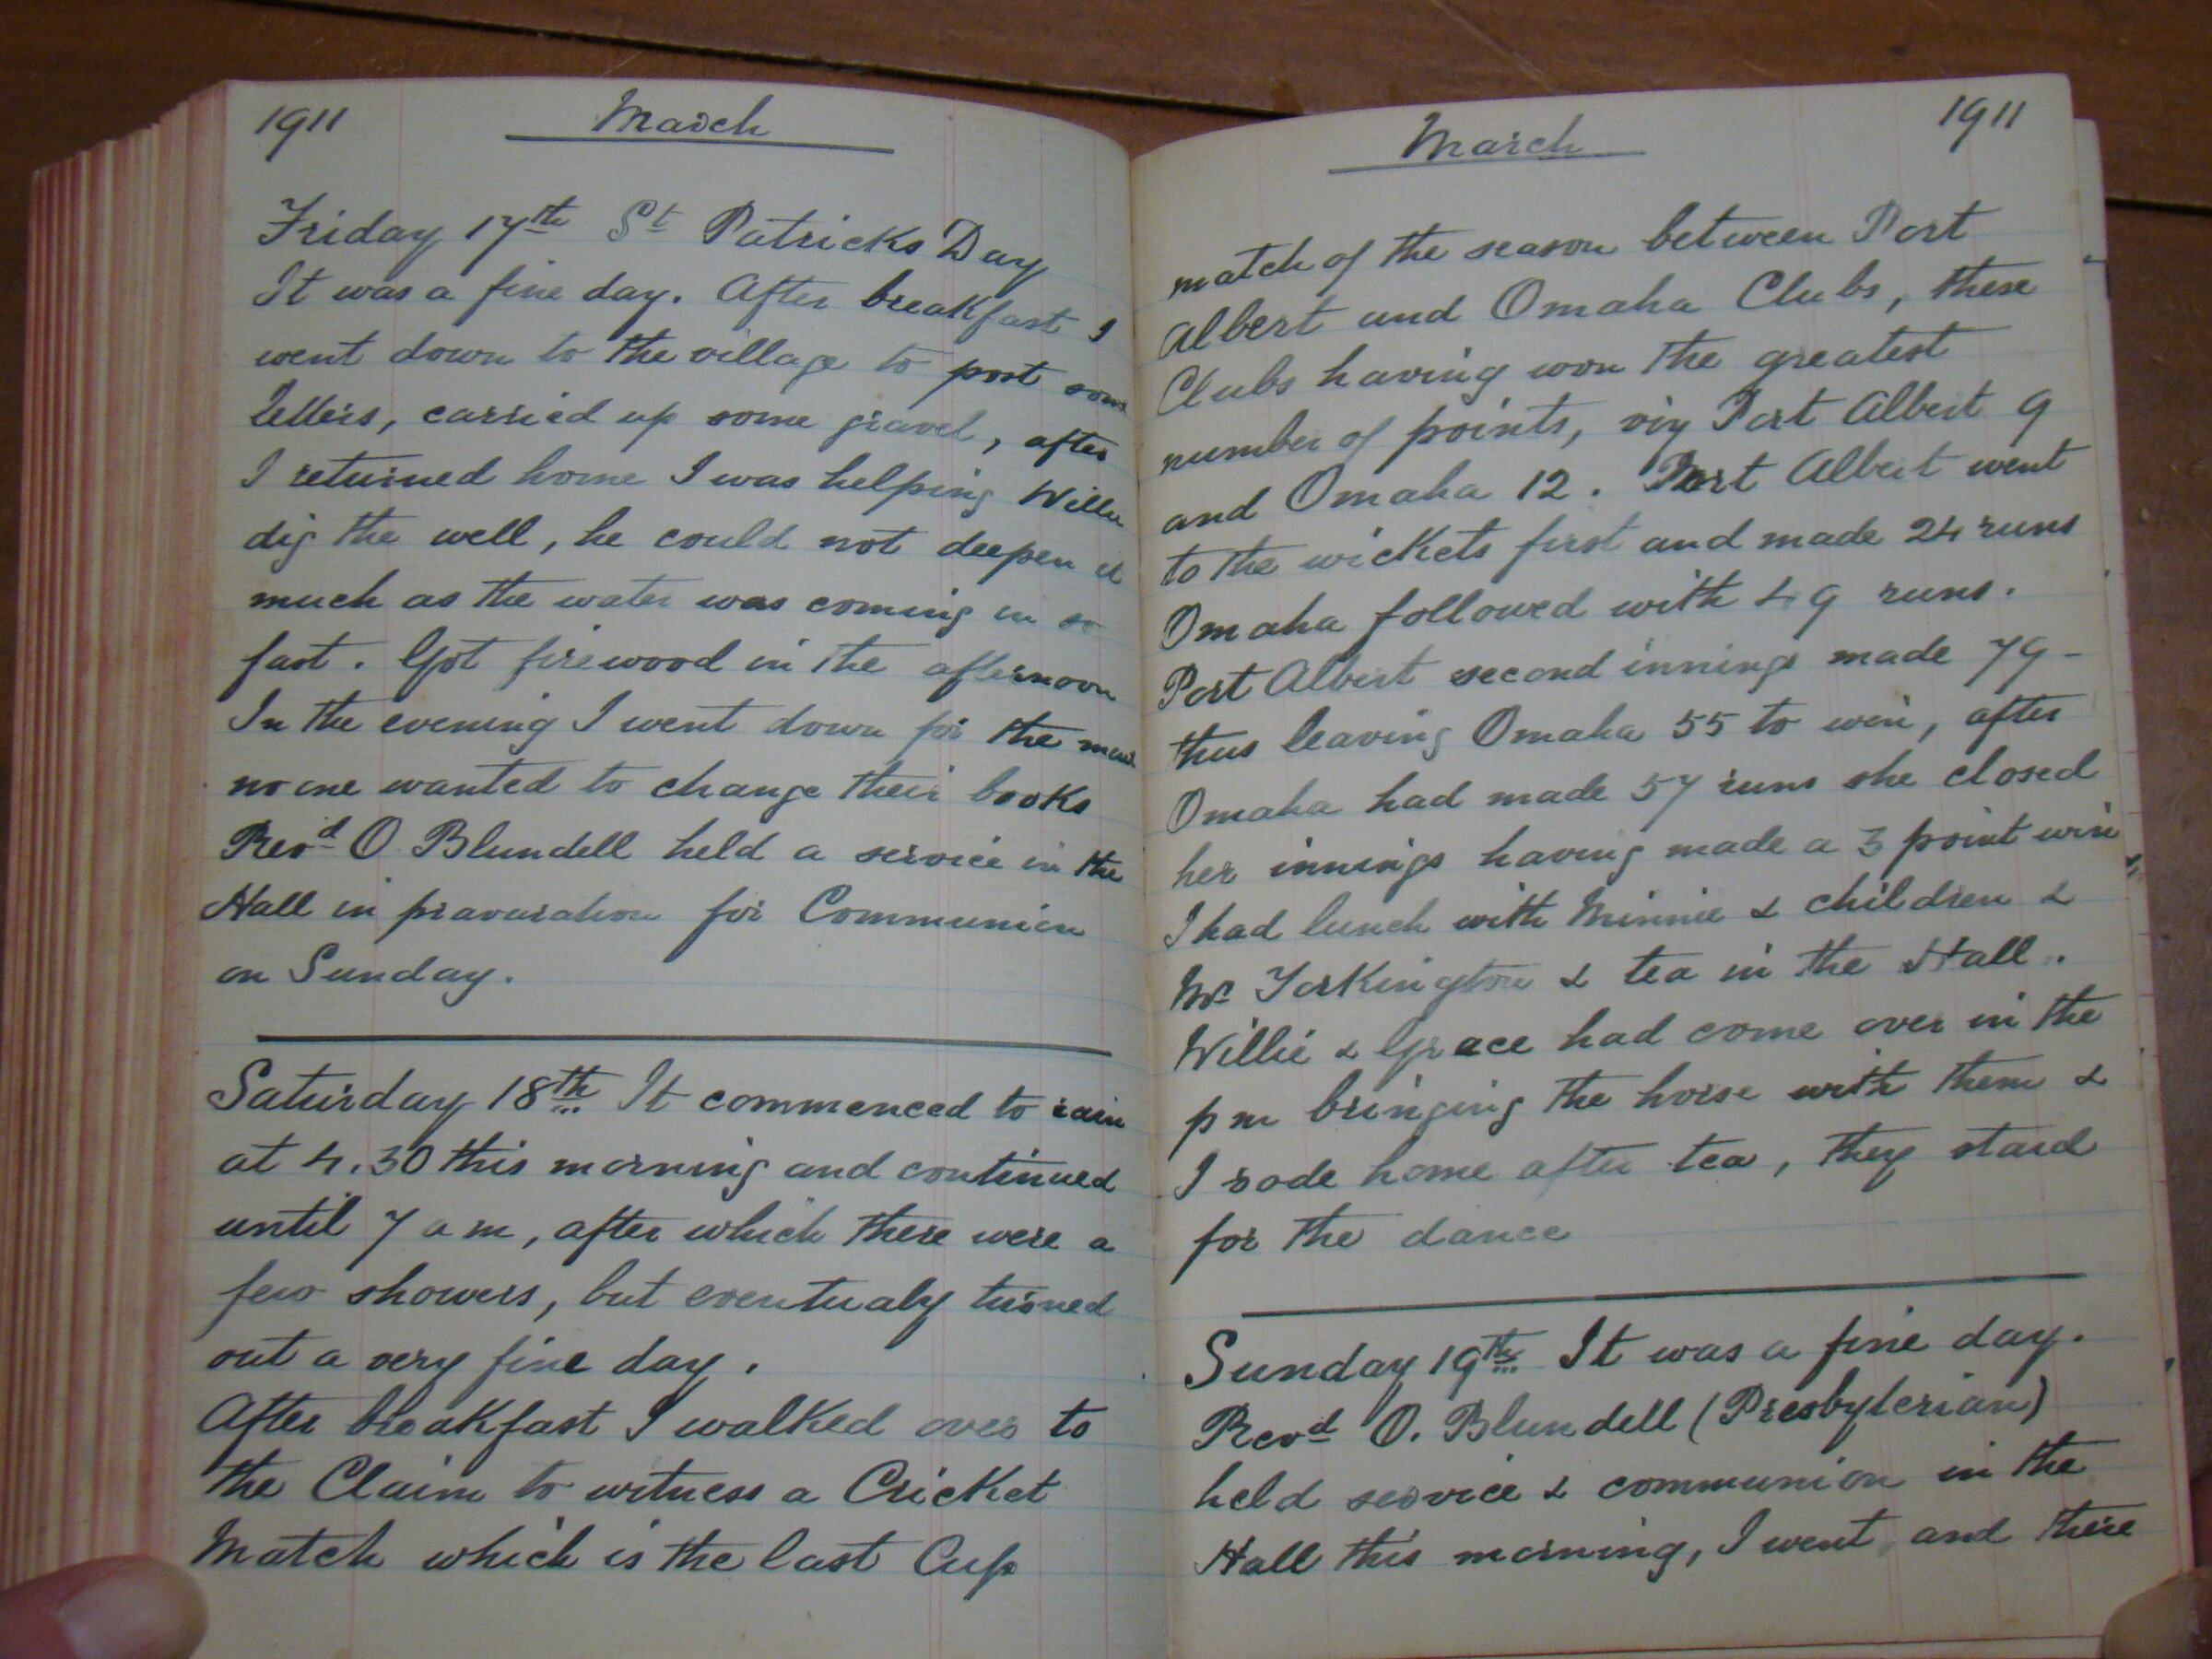 1911 March
Friday 17th St Patricks Day
It was a fine day. After breakfast I
went down to the village to post some
letters, carried up some gravel, after
I returned home I was helping Willie
dig the well, he could not deepen it
much as the water was coming in so
fast. Got firewood in the afternoon
In the evening I went down for the mail
no one wanted to change their books
Revd O Blundell held a service in the
Hall in pravaration for Communion
on Sunday.
Saturday 18th It commenced to rain
at 4.30 this morning and continued
until 7 am, after which there were a
few showers, but eventualy turned
out a very fine day.
After breakfast I walked over to
the Claim to witness a Cricket
Match which is the last Cup
March 1911
match of the season between Port
Albert and Omaha Clubs, these
Clubs having won the greatest
number of points, viz Port Albert 9
and Omaha 12. Port Albert went
to the wickets first and made 24 runs
Omaha followed with 49 runs.
Port Albert second innings made 79 -
thus leaving Omaha 55 to win, after
Omaha had made 57 runs she closed
her innings having made a 3 point win
I had lunch with Minnie & children &
Mr Torkington & tea in the Hall.
Willie & Grace had come over in the
pm bringing the horse with them &
I rode home after tea, they staid
for the dance
Sunday 19th It was a fine day.
Revd O. Blundell (Presbyterian)
held service & communion in the
Hall this morning, I went and there